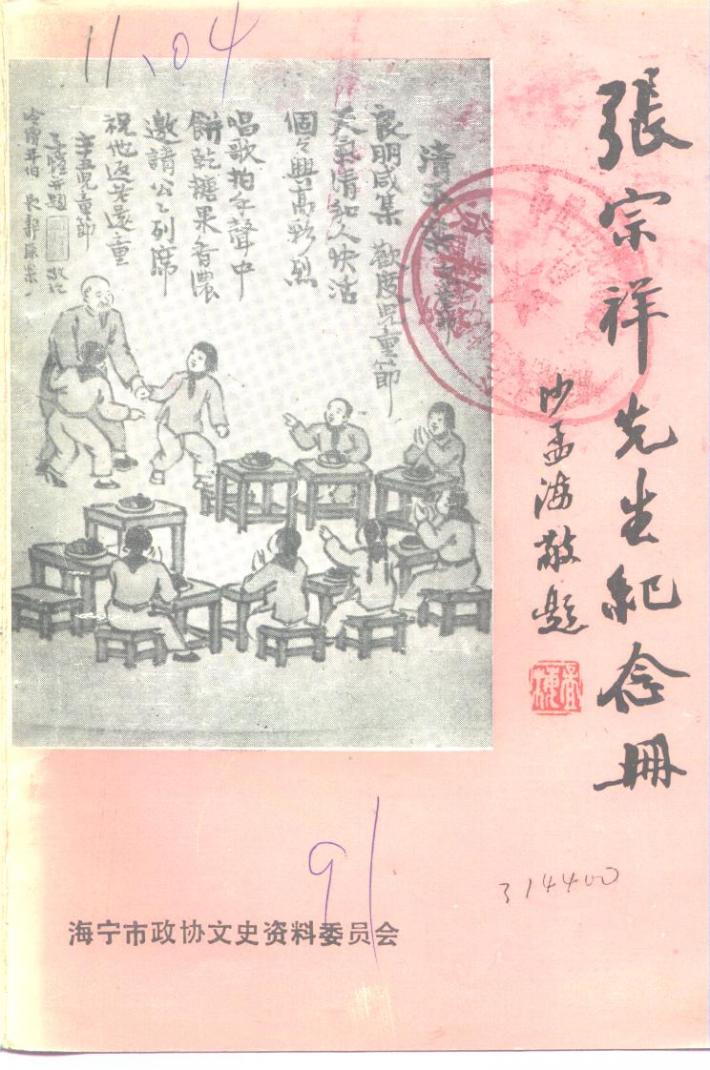 張宗祥先生紀念冊
沙孟海敬題
清平樂
良朋咸集 歡度児童節
天氣清和人快活
個々興高彩烈
唱歌拍手聲中
餅乾糖果香濃
邀請公公列席
祝他返老還童
辛丑児童節
11.04
91
314400
海宁市政协文史资料委员会